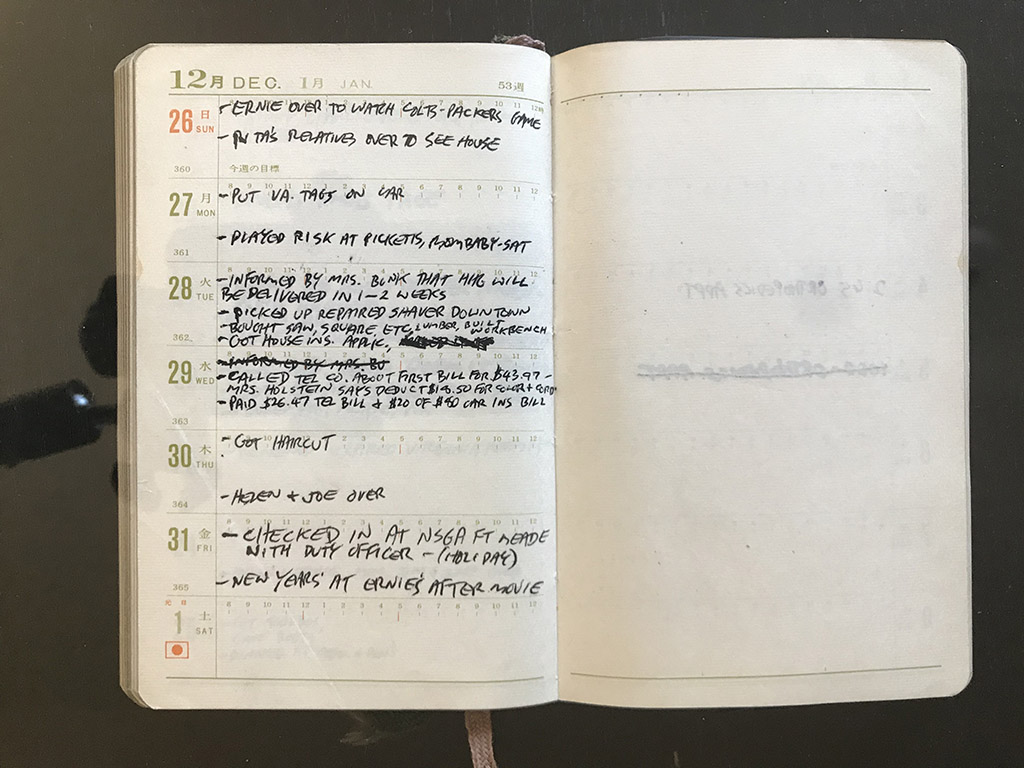 12月 DEC. 1月 JAN. 53週
26 日 SUN
- ERNIE OVER TO WATCH COLTS-PACKERS GAME
- RITA'S RELATIVES OVER TO SEE HOUSE
360 今週の目標
27 月 MON
8 9 10 11 12 1 2 3 4 5 6 7 8 9 10 11 12
- PUT VA. TAGS ON CAR
- PLAYED RISK AT PICKETTS, MOM BABY-SAT
361
28 火 TUE
- INFORMED BY MRS. BUNK THAT HHG WILL
BE DELIVERED IN 1-2 WEEKS
- PICKED UP REPAIRED SHAVER DOWNTOWN
- BOUGHT SAW, SQUARE, ETC, LUMBER, BUILT WORKBENCH
- GOT HOUSE INS. APPLIC,
362
29 水 WED
- INFORMED BY MRS. BU
- CALLED TEL CO. ABOUT FIRST BILL FOR $43.97 -
MRS. HOLSTEIN SAYS DEDUCT FOR COLOR + CORD
- PAID $26.47 TEL BILL & $20 OF $80 CAR INS BILL
363
30 木 THU
- GOT HAIRCUT
- HELEN + JOE OVER
364
31 金 FRI
- CHECKED IN AT NSGA FT MEADE
WITH DUTY OFFICER - (HOLIDAY)
- NEW YEARS' AT ERNIE'S AFTER MOVIE
365
元日
1 土 SAT
8 9 10 11 12 1 2 3 4 5 6 7 8 9 10 11 12